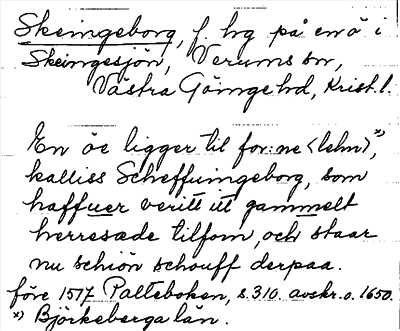 Skeingeborg, f. hg på en ö i
Skeingesjön, Verums sn,
Västra Göinge hd, Krist. l.
En öe ligger til for:ne <lehn>x),
kalliss Scheffuingeborg, som
haffuer veritt itt gammelt
herresæde tilforn, och staar
nu schiön schouff derpaa.
före 1517 Palteboken, s. 310. avskr. o. 1650.
x) Björkeberga län.